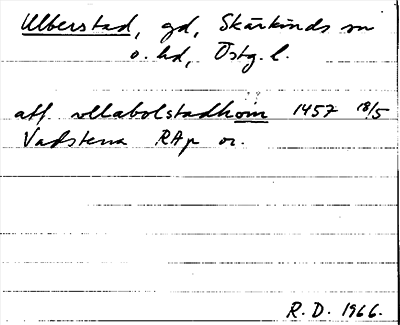 Ulberstad, gd, Skärkinds sn
o. hd, Östg. l.
aff. vllabolstadhom 1457 18/5
Vadstena RAp or.
R. D. 1966.